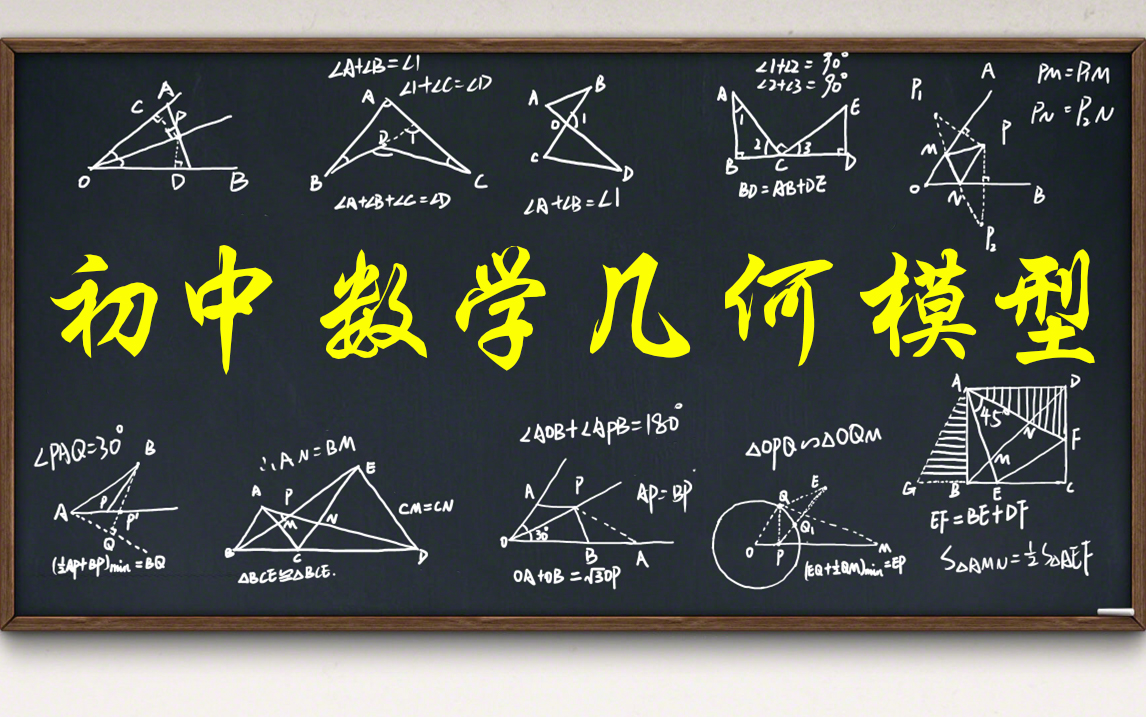 C A P
O D B
∠A+∠B=∠1
∠1+∠C=∠D
A D 1
B C
∠A+∠B+∠C=∠D
A B O 1
C D
∠A+∠B=∠1
∠1+∠2=90°
∠2+∠3=90°
A E
1 2 3
B C D
BD=AB+DE
P₁ A
M P
O N B
P₂
PM=P₁M
PN=P₂N
初中数学几何模型
∠PAQ=30°
B
A P P'
Q
(½AP+BP)min=BQ
∴AN=BM
E
A P
M N
B C D
CM=CN
△BCE≌△BCE.
∠AOB+∠APB=180°
A P
AP=BP
O 30° B A
OA+OB=√3OP
△OPQ∽△OQM
Q E
Q₁
O P M
(EQ+½QM)min=EP
A D
45°
N F
M
G B E C
EF=BE+DF
S△AMN=½S△AEF